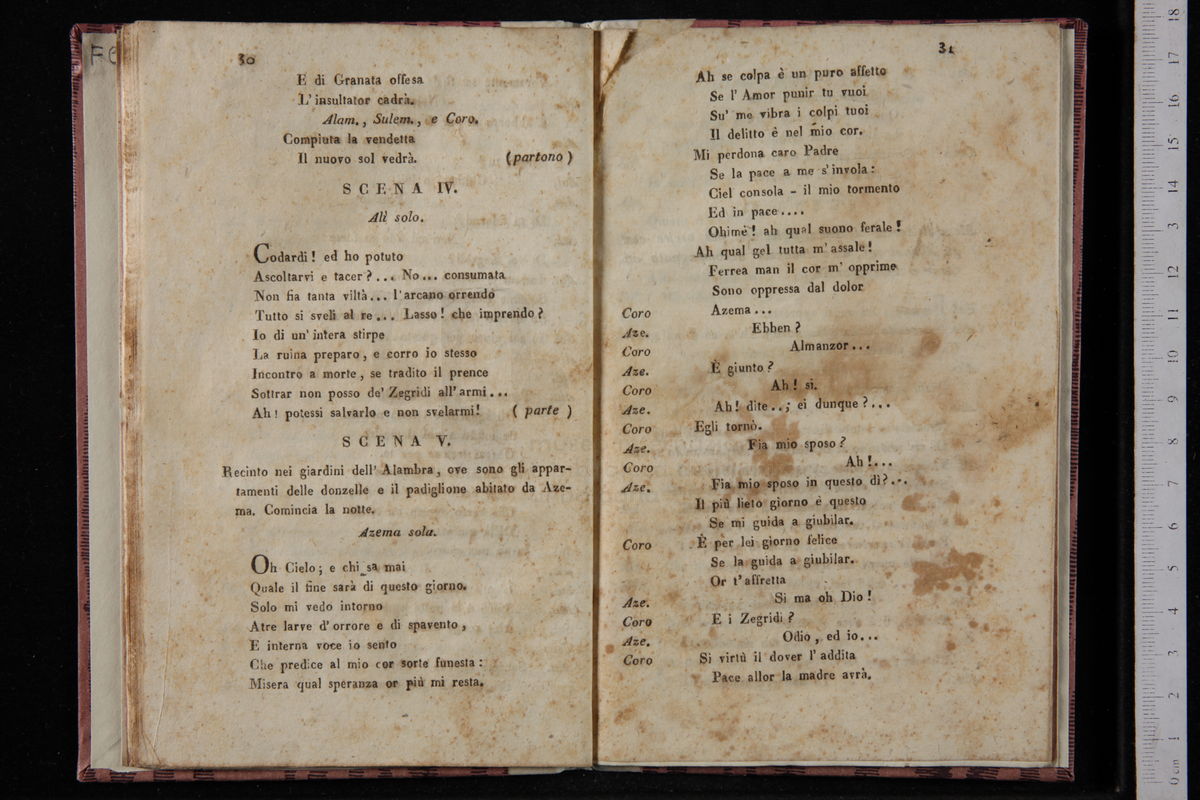 FC
30
E di Granata offesa
L'insultator cadrà.
Alam., Sulem., e Coro.
Compiuta la vendetta
Il nuovo sol vedrà. (partono)
SCENA IV.
Alì solo.
Codardi! ed ho potuto
Ascoltarvi e tacer?... No... consumata
Non fia tanta viltà... l'arcano orrendo
Tutto si sveli al re... Lasso! che imprendo?
Io di un'intera stirpe
La ruina preparo, e corro io stesso
Incontro a morte, se tradito il prence
Sottrar non posso de' Zegridi all'armi...
Ah! potessi salvarlo e non svelarmi! ( parte )
SCENA V.
Recinto nei giardini dell'Alambra, ove sono gli appar-
tamenti delle donzelle e il padiglione abitato da Aze-
ma. Comincia la notte.
Azema sola.
Oh Cielo; e chi sa mai
Quale il fine sarà di questo giorno.
Solo mi vedo intorno
Atre larve d'orrore e di spavento,
E interna voce io sento
Che predice al mio cor sorte funesta:
Misera qual speranza or più mi resta.
31
Ah se colpa è un puro affetto
Se l'Amor punir tu vuoi
Su' me vibra i colpi tuoi
Il delitto è nel mio cor.
Mi perdona caro Padre
Se la pace a me s'invola:
Ciel consola - il mio tormento
Ed in pace....
Ohimè! ah qual suono ferale!
Ah qual gel tutta m'assale!
Ferrea man il cor m'opprime
Sono oppressa dal dolor
Coro Azema...
Aze. Ebben?
Coro Almanzor...
Aze. È giunto?
Coro Ah! si.
Aze. Ah! dite..; ei dunque?...
Coro Egli tornò.
Aze. Fia mio sposo?
Coro Ah!...
Aze. Fia mio sposo in questo dì?...
Il più lieto giorno è questo
Se mi guida a giubilar.
Coro È per lei giorno felice
Se la guida a giubilar.
Or t'affretta
Aze. Si ma oh Dio!
Coro E i Zegridi?
Aze. Odio, ed io...
Coro Si virtù il dover l'addita
Pace allor la madre avrà.
0 cm 1 2 3 4 5 6 7 8 9 10 11 12 13 14 15 16 17 18